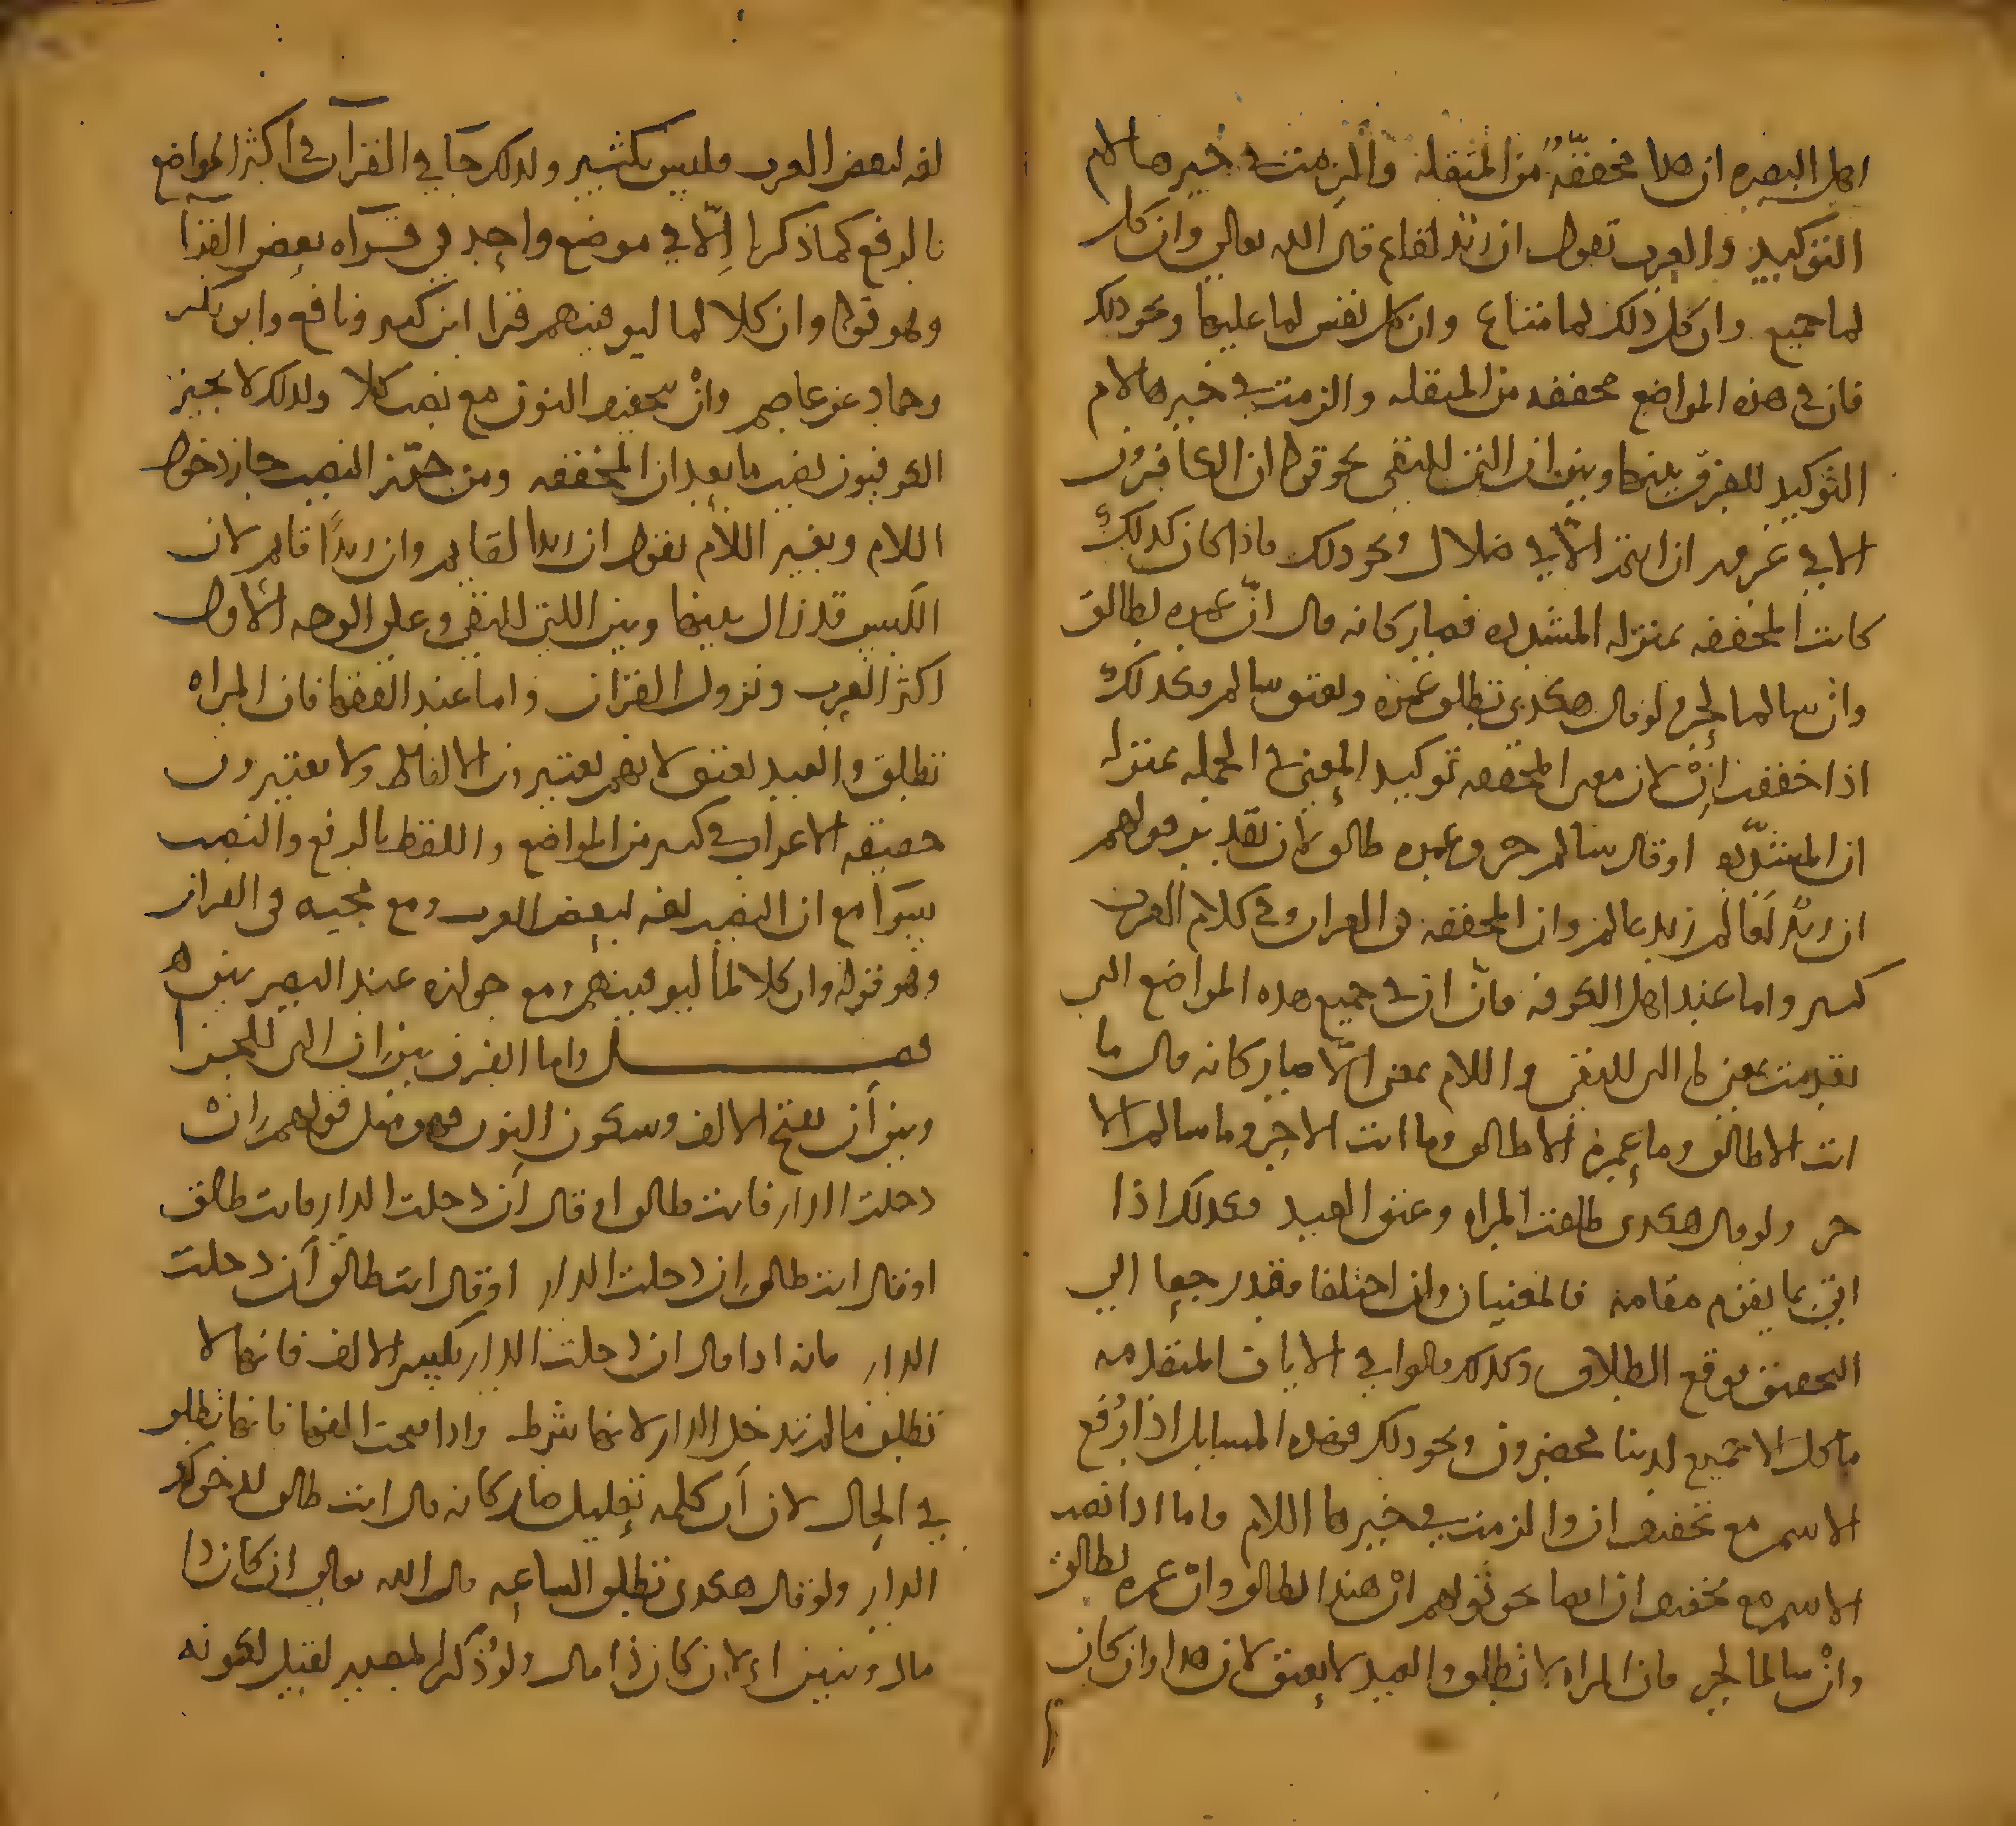 اهل البصره ان هذا مخففة من المثقله والزمت في خبرها لام
التوكيد والعرب تقول ان زيد لقايم قال الله تعالى وان كل
لما جميع وان كل ذلك لما متاع وان كل نفس لما عليها ونحو ذلك
فان في هذه المواضع مخففه من المثقله والزمت في خبرها لام
التوكيد للفرق بينها وبين ان التي للنفي نحو قوله ان الكافرون
الا في غرور ان انتم الا في ضلال ونحو ذلك فاذا كان كذلك
كانت المخففه بمنزله المشدده فصار كانه قال انّ عمره لطالق
وان سالما لحر ولو قال هكذى تطلق عمره ويعتق سالم فكذلك
اذا خففت انْ لان معنى المخففه توكيد المعنى في الجمله بمنزله
ان المشدّده او قال سالم حر وعمره طالق لان تقدير قولهم
ان زيدٌ لعالم زيد عالم وان المخففه في القران وفي كلام العرب
كثير واما عند اهل الكوفه فانّ ان في جميع هذه المواضع التي
تقدمت بمعنى ما التي للنفي واللام بمعنى الّا صار كانه قال ما
انت الا طالق وما عمرة الا طالق وما انت الا حر وما سالم الا
حر ولو قال هكذى طلقت المراه وعتق العبد فكذلك اذا
اتى بما يقوم مقامه فالمعنيان وان اختلفا فقد رجعا الى
التحقيق فوقع الطلاق وكذلك قالوا في الايات المتقدمه
ما كل الا جميع لدينا محضرون ونحو ذلك فهذه المسايل اذا رُفع
الاسم مع تخفيف ان والزمت في خبرها اللام فاما اذا نصب
الاسم مع تخفيف ان ايضا نحو قولهم انْ هندا لطالق وانْ عمره لطالق
وانْ سالما لحر فان المراه لا تطلق والعبد لا يعتق لان هذا وان كان
لغه لبعض العرب فليس بكثير ولذلك جا في القرآن في اكثر المواضع
بالرفع كما ذكرنا الّا في موضع واحد في قرآه بعض القرآ
وهو قوله وان كلا لما ليوفينهم قرا ابن كثير ونافع وابو بكر
وحماد عن عاصم وانْ بتخفيف النون مع نصب كلا ولذلك لا يجيز
الكوفيون نصب ما بعد ان المخففه ومن جوّز النصب جاز دخول
اللام وبغير اللام تقول ان زيدا لقايم وان زيدًا قايم لان
اللبس قد زال بينها وبين التي للنفي وعلى الوجه الاول
اكثر العرب ونزول القران واما عند الفقها فان المراه
تطلق والعبد يعتق لانهم يعتبرون الالفاظ ولا يعتبرون
حقيقه الاعراب في كثير من المواضع واللفظ بالرفع والنصب
سوآ مع ان النصب لغه لبعض العرب ومع مجيه في القران
وهو قوله وان كلا لما ليوفينهم ومع جوازه عند البصريين
فصل واما الفرق بين ان التي للجزا
وبين أن بفتح الالف وسكون النون فهو مثل قولهم ان
دخلت الدار فانت طالق او قال أن دخلت الدار فانت طالق
او قال انت طالق ان دخلت الدار او قال انت طالق أن دخلت
الدار فانه اذا قال ان دخلت الدار بكسر الالف فانها لا
تطلق ما لم تدخل الدار لانها شرط واذا فتحت الفها فانها تطلق
في الحال لان أن كلمه تعليل صار كانه قال انت طالق لدخولك
الدار ولو قال هكذى تطلق الساعه قال الله تعالى ان كان ذا
مال وبنين اى لان كان ذا مال ولو ذكر المصدر لقيل لكونه